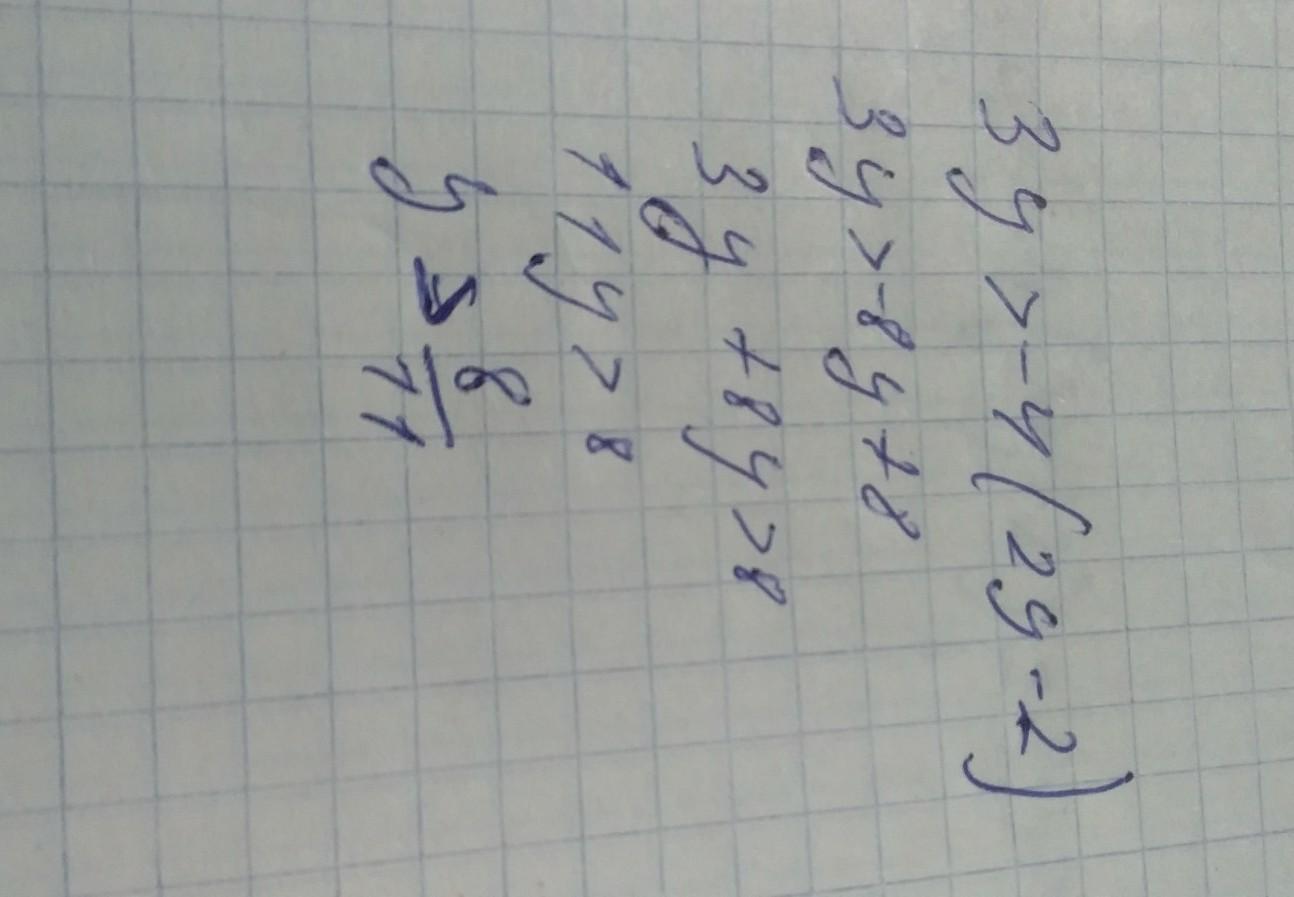 3y > -4(2y - 2)
3y > -8y + 8
3y + 8y > 8
11y > 8
y > 8/11